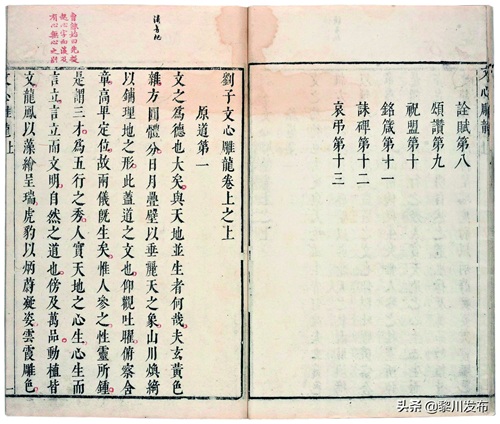 文心雕龍
詮賦第八
頌讚第九
祝盟第十
銘箴第十一
誄碑第十二
哀弔第十三
劉子文心雕龍卷上之上
原道第一
文之為德也大矣與天地並生者何哉夫玄黃色
雜方圓體分日月疊壁以垂麗天之象山川煥綺
以鋪理地之形此蓋道之文也仰觀吐曜俯察含
章高卑定位故兩儀旣生矣惟人參之性靈所鍾
是謂三才為五行之秀人實天地之心生心生而
言立言立而文明自然之道也傍及萬品動植皆
文龍鳳以藻繪呈瑞虎豹以炳蔚凝姿雲霞雕色
文心雕龍上
一
有心無心之別
头条 @黎川发布